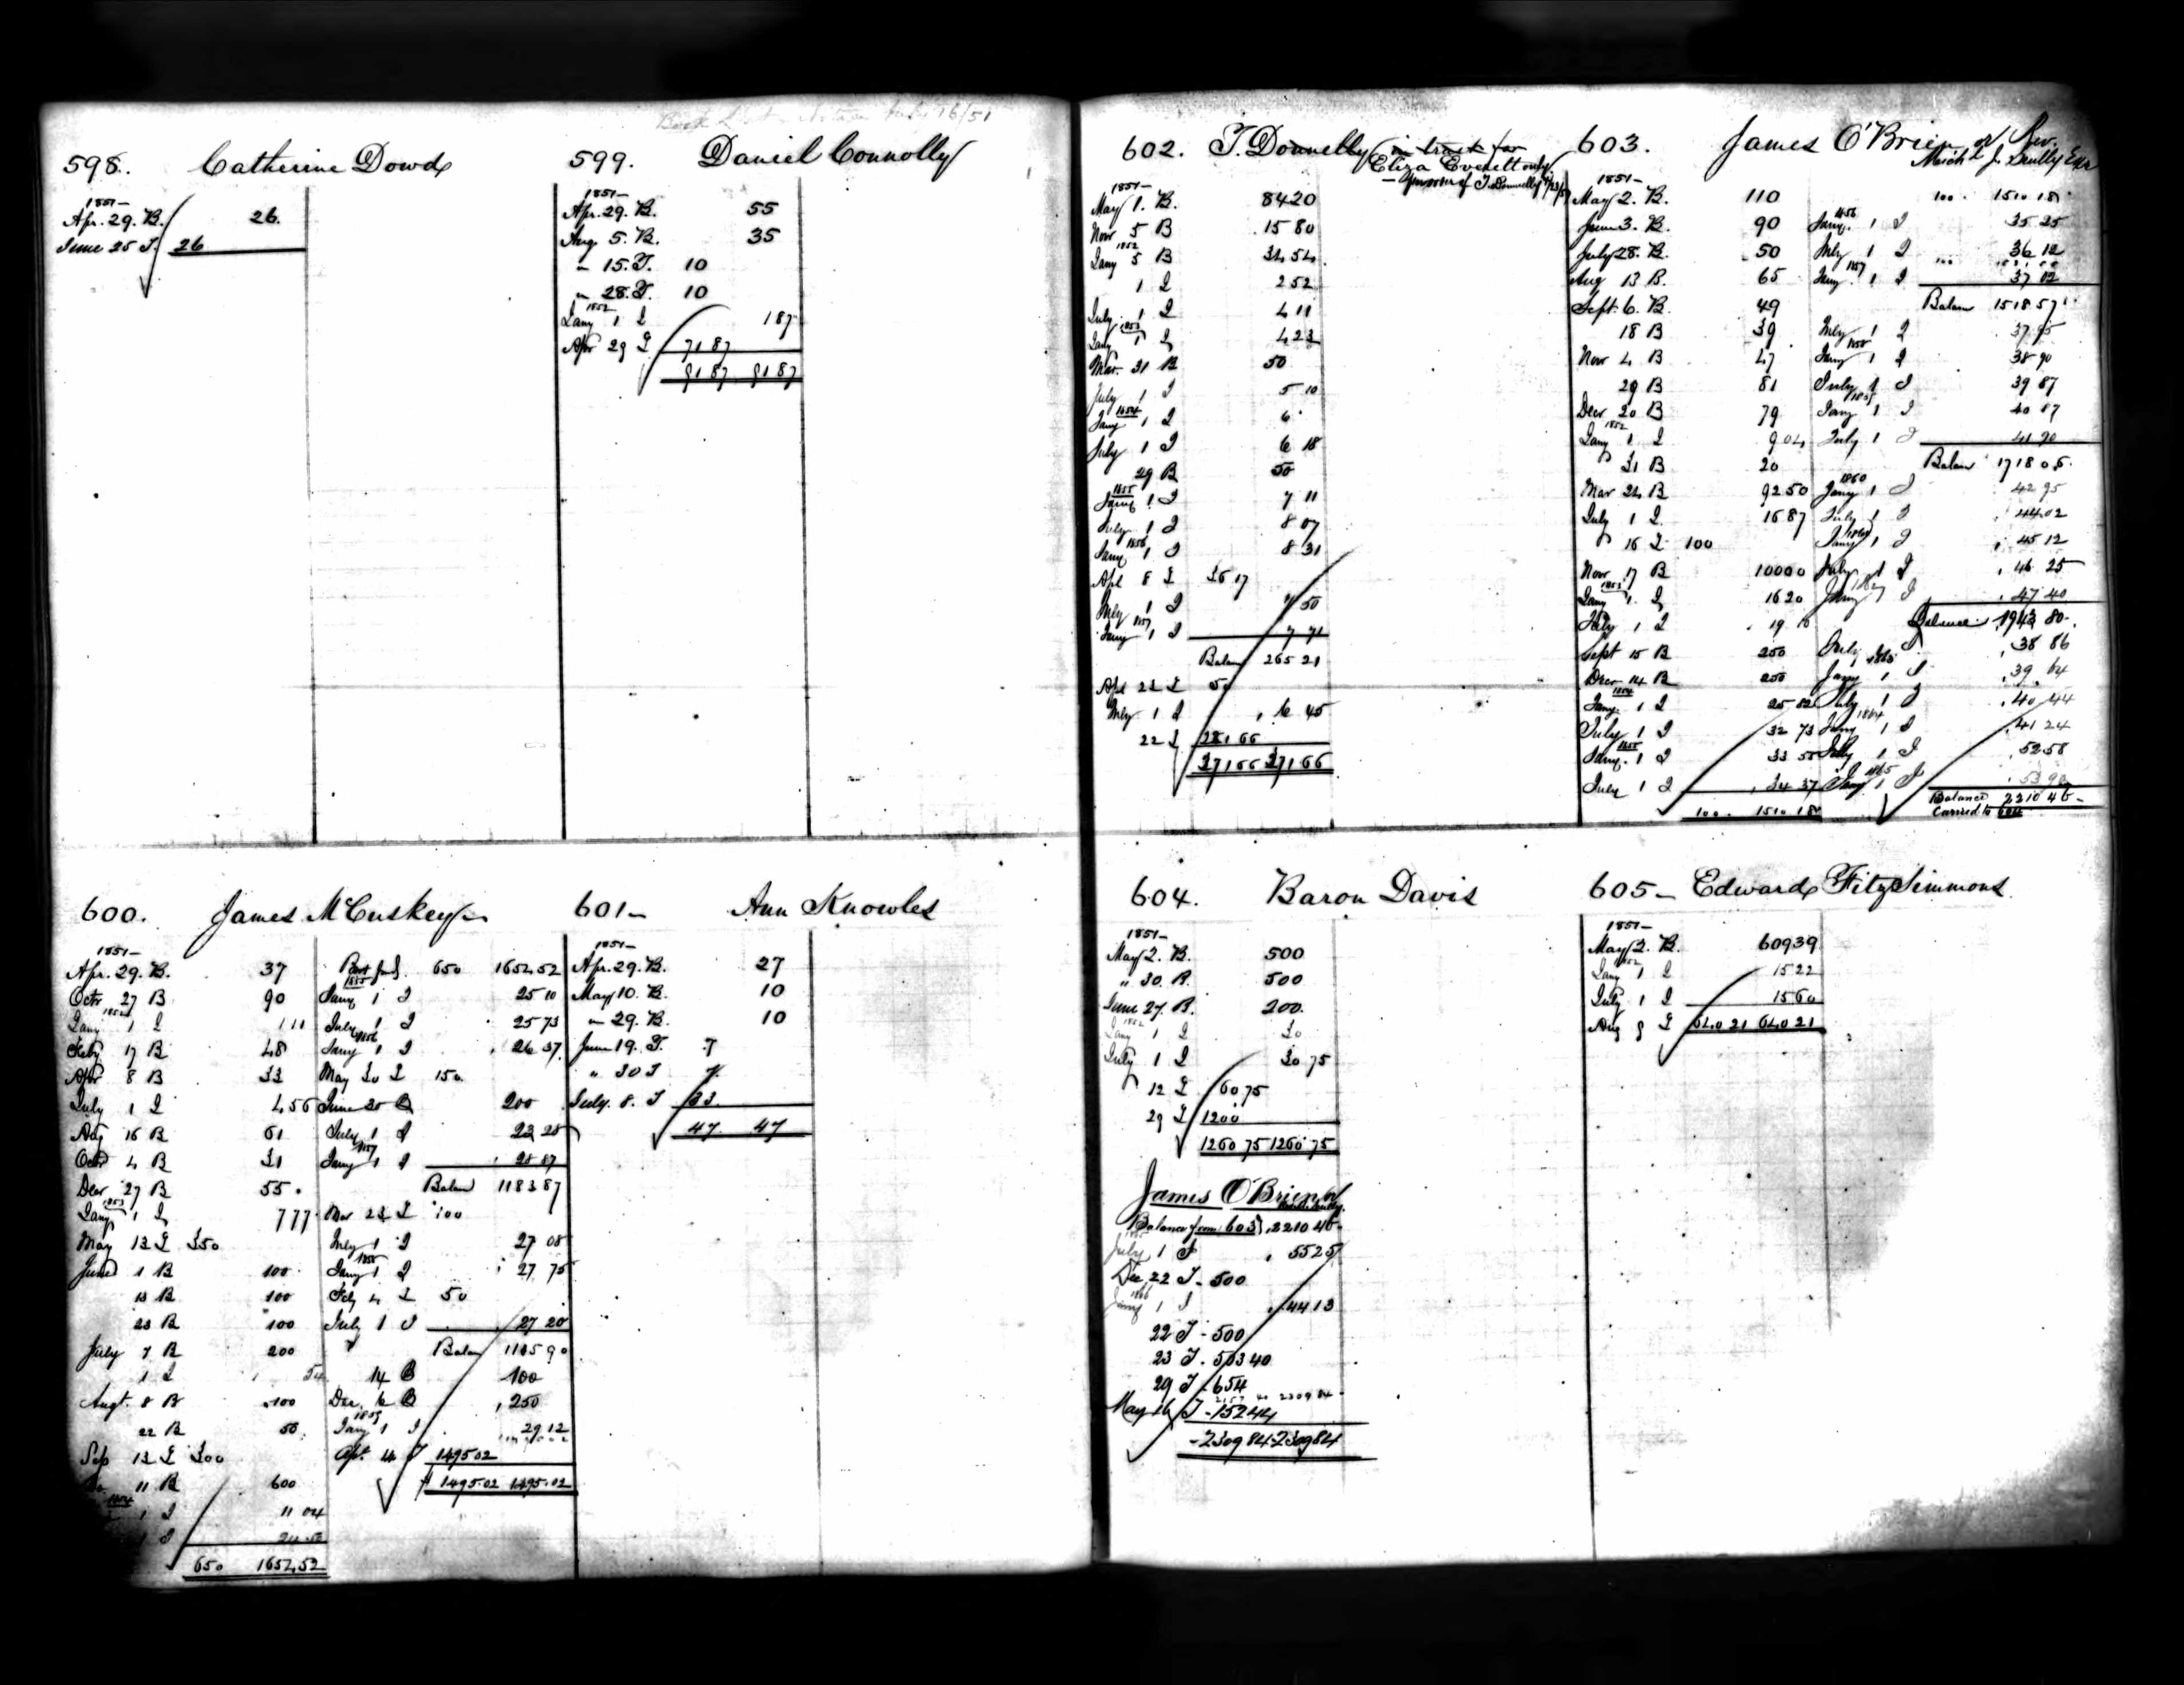 598. Catherine Dowd
1851-
Apr. 29. B. 26.
June 25 T. 26
599. Daniel Connolly
1851-
Apr. 29. B. 55
Aug. 5. B. 35
" 15. T. 10
" 28. T. 10
1852
Jany 1 I 1 87
Apr 29 T 71 87
91 87 91 87
600. James McCuskey
1851-
Apr. 29. B. 37
Octr 27 B 90
1852
Jany 1 I 1 11
Feby 17 B 48
Apr 8 B 33
July 1 I 4 56
Aug 16 B 61
Octr 4 B 31
Decr 27 B 55.
1853
Jany 1 I 7 77
May 13 T 350
June 1 B 100
13 B 100
23 B 100
July 7 B 200
1 I
Augt. 8 B 100
22 B 50
Sep 13 T 300
11 B 600
1854
1 I 11 04
1 I
650 1652,52
650 1652,52
1855
Jany 1 I 25 10
July 1 I 25 73
1856
Jany 1 I 26 37
May 30 T 150.
June 20 B 200
July 1 I 23 28
1857
Jany 1 I 28 87
Balan 1183 87
Mar 23 T 100
July 1 I 27 08
1858
Jany 1 I 27 75
Feby 4 T 50
July 1 I 27 20
Balan 1115 90
14 B 100
Dec. 6 B 250
1859
Jany 1 I 29 12
Apr. 4 T 1495.02
1495.02 1495.02
601- Ann Knowles
1851-
Apr. 29. B. 27
May 10. B. 10
" 29. B. 10
June 19. T. 7
" 30 T 7.
July. 8. T 33.
47. 47
602. T. Donnelly in trust for
Eliza Everett only
1851-
May 1. B. 84 20
Nov 5 B 15 80
1852
Jany 5 B 34 54
1 I 2 52
July 1 I 4 11
1853
Jany 1 I 4 23
Mar. 31 B 50
July 1 I 5 10
1854
Jany 1 I 6
July 1 I 6 18
29 B 50
1855
Jany 1 I 7 11
July 1 I 8 07
1856
Jany 1 I 8 31
Apl 8 T 36 17
July 1 I 7 50
1857
Jany 1 I 7 71
Balan 265 21
Apl 23 T 50
July 1 I 6 45
22 T 221 66
271 66 271 66
603. James O'Brien or Rev.
Mich'l J. Scully Exr
1851-
May 2. B. 110
June 3. B. 90
July 28. B. 50
Aug 13 B. 65
Sept. 6. B. 49
18 B 39
Nov 4 B 47
29 B 81
Decr 20 B 79
1852
Jany 1 I 9 04
" 31 B 20
Mar 24 B 92 50
July 1 I 16 87
" 16 T 100
Nov 17 B 100 00
1853
Jany 1 I 16 20
July 1 I 19
Sept 15 B 250
Decr 14 B 250
1854
Jany 1 I 25 82
July 1 I 32 73
1855
Jany. 1 I 33 55
July 1 I 34 37
100. 1510 18
100. 1510 18
1856
Jany. 1 I 35 25
July 1 I 36 12
1857
Jany. 1 I 37 02
Balan 1518 57
July 1 I 37 95
1858
Jany 1 I 38 90
July 1 I 39 87
1859
Jany 1 I 40 87
July 1 I 41 90
Balan 1718 06
1860
Jany 1 I 42 95
July 1 I 44 02
1861
Jany 1 I 45 12
July 1 I 46 25
1862
Jany 1 I 47 40
Balance 1943 80
July I 38 86
1863
Jany 1 I 39 64
July 1 I 40 44
1864
Jany 1 I 41 24
July 1 I 52 58
1865
Jany 1 I 53 90
Balance 2210 46
Carried to 604
604. Baron Davis
1851-
May 2. B. 500
" 30. B. 500
June 27. B. 200.
1852
Jany 1 I 30
July 1 I 30 75
" 12 T 60 75
29 T 1200
1260 75 1260 75
James O'Brien or
Balance from 603 2210 46
1865
July 1 I 55 25
Dec 22 T - 500
1866
Jany 1 I 44 13
22 T - 500
23 T - 503 40
29 T - 654
May 16 T - 152 44
2309 84 2309 84
605- Edward FitzSimmons
1851-
May 2. B. 609 39
1852
Jany 1 I 15 22
July 1 I 15 60
Aug 9 T 640 21 640 21